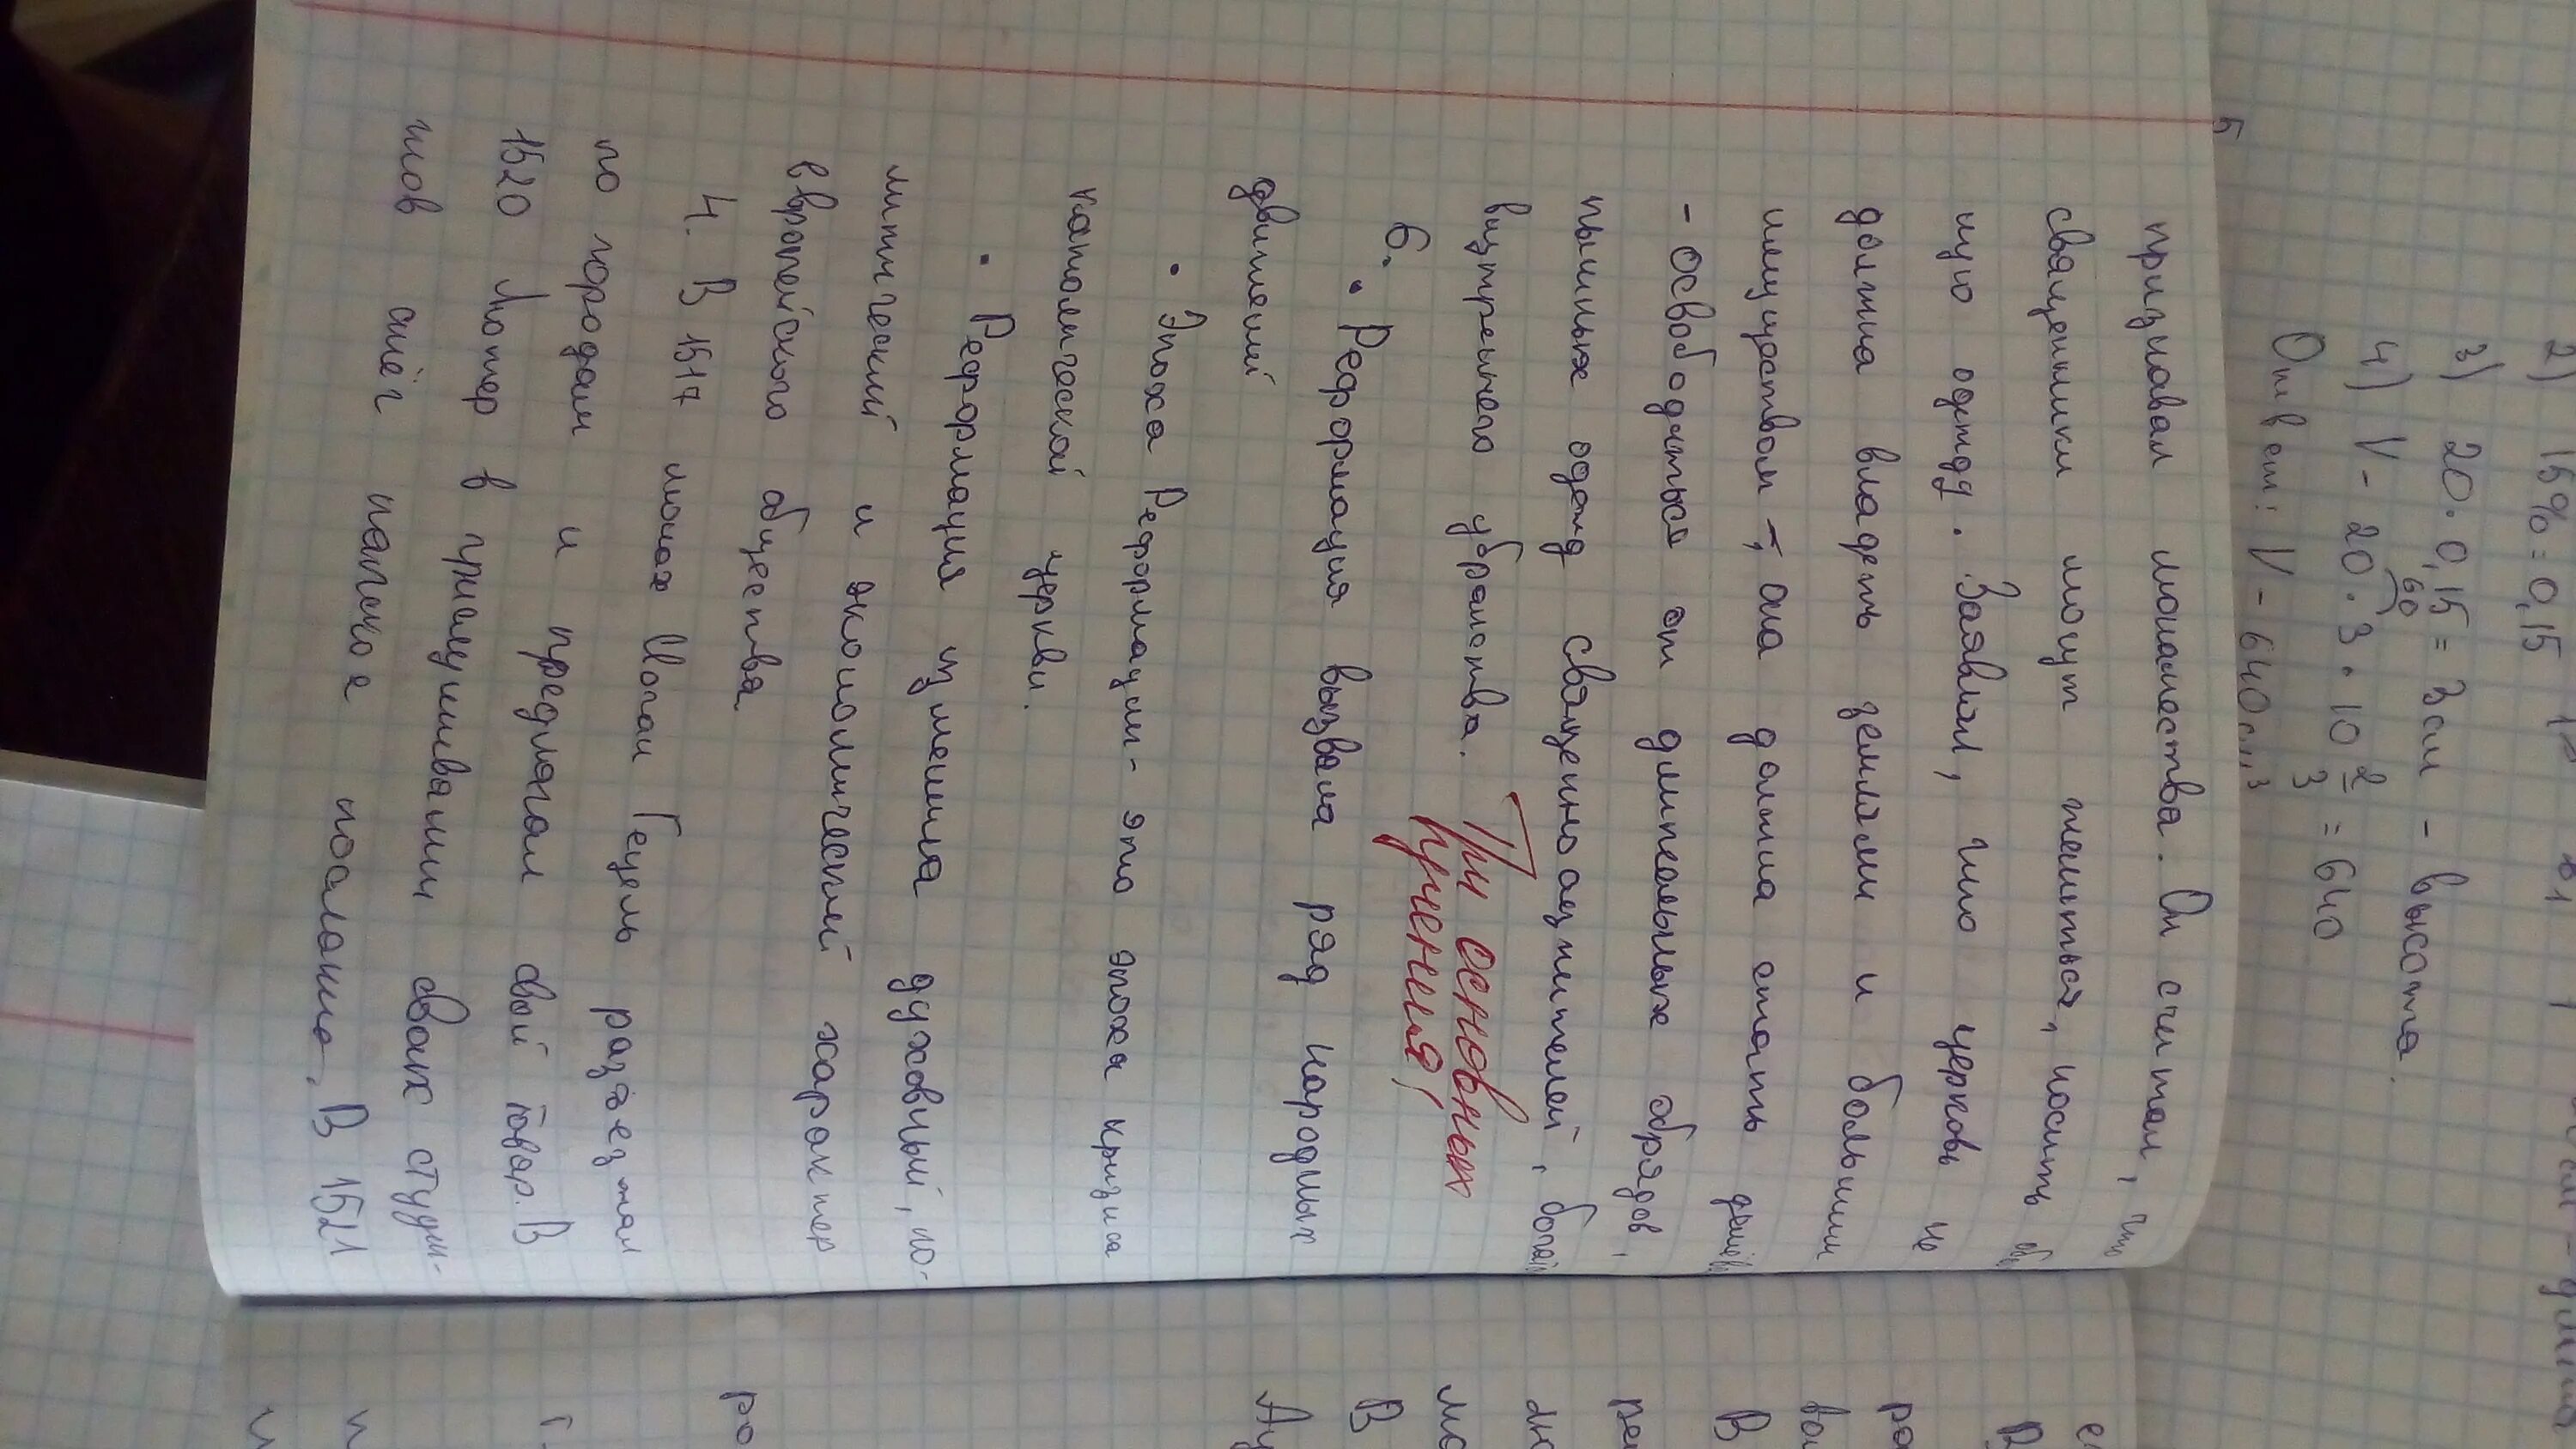 2) 15% = 0,15
3) 20 · 0,15 = 3см - высота.
4) V - 20 · 3 · 10 2/3 = 640
60
Ответ: V - 640см³
5
признавал монашества. Он считал, что
священники могут жениться, носить
ную одежд. Заявлял, что церковь не
должна владеть землями и большим
имуществом -, она должна стать дешёв
- Освободиться от длительных обрядов,
пышных одежд священнослужителей, богат
внутреннего убранства.
Три основных
учения!
6. • Реформация вызвала ряд народных
движений
• Эпоха Реформации - это эпоха кризиса
католической церкви.
• Реформация изменила духовный, по-
литический и экономический характер
европейского общества
4. В 1517 монах Иоган Тецель разъезжал
по городам и предлагал свой товар. В
1520 Лютер в присутствии своих студен-
тов сжёг папское послание. В 1521